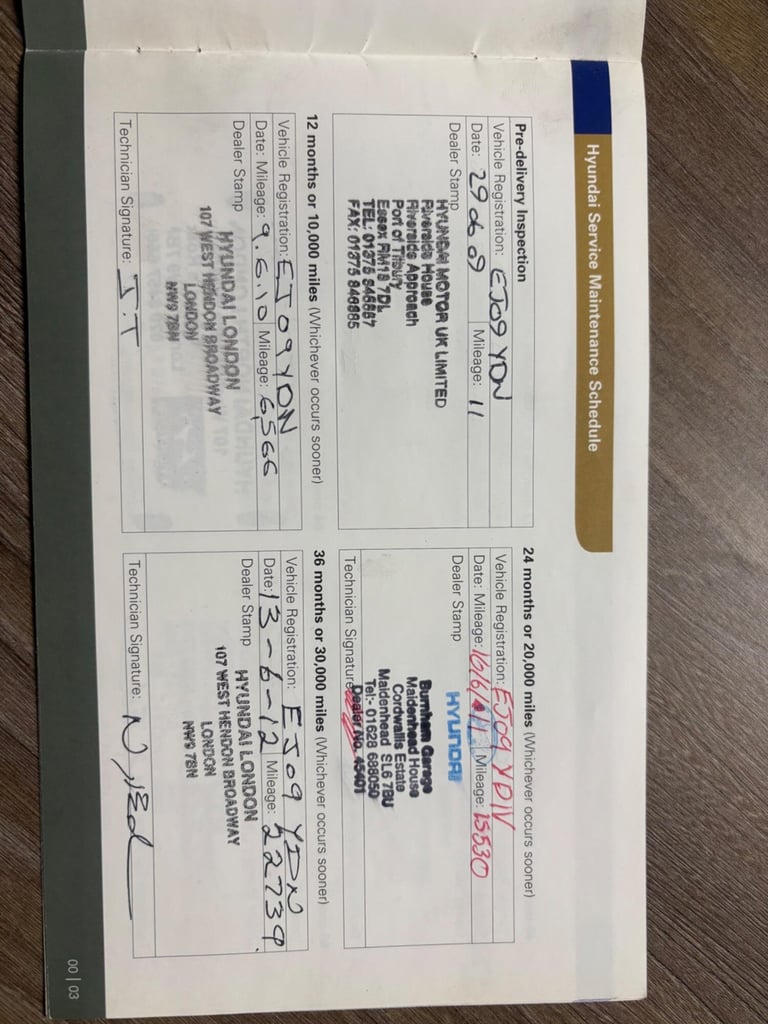 Hyundai Service Maintenance Schedule
Pre-delivery Inspection
Vehicle Registration: EJ09 YDN
Date: 29 6 09 Mileage: 11
Dealer Stamp
HYUNDAI MOTOR UK LIMITED
Riverside House
Riverside Approach
Port of Tilbury
Essex RM18 7DL
TEL: 01375
FAX: 01375
12 months or 10,000 miles (Whichever occurs sooner)
Vehicle Registration: EJ09YDN
Date: 9.6.10 Mileage: 6,566
Dealer Stamp
HYUNDAI LONDON
107 WEST HENDON BROADWAY
LONDON
NW9 7BN
Technician Signature: J.T
24 months or 20,000 miles (Whichever occurs sooner)
Vehicle Registration: EJ09 YDN
Date: Mileage: 15530
Dealer Stamp
HYUNDAI
Burnham Garage
Maidenhead House
Cordwallis Estate
Maidenhead SL6 7BU
Tel:- 01628 688050
Technician Signature
Dealer No. 45401
36 months or 30,000 miles (Whichever occurs sooner)
Vehicle Registration: EJ09 YDN
Date: 13-6-12 Mileage: 22739
Dealer Stamp
HYUNDAI LONDON
107 WEST HENDON BROADWAY
LONDON
NW9 7BN
Technician Signature:
00 | 03